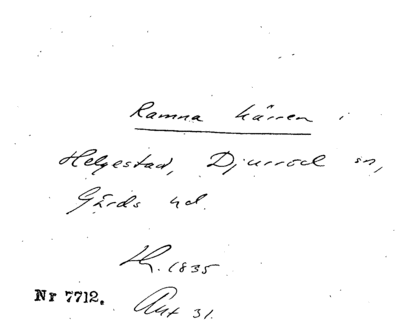 Ramna kärren i
Helgestad, Djurröd sn,
Gärds hd.
Lh. 1835
Nr 7712.
Akt 31.